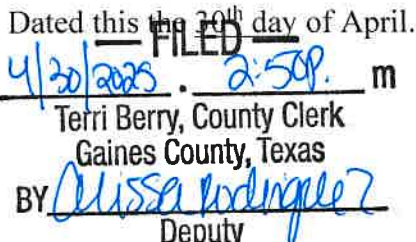 Dated this the 30th day of April.
FILED
4/30/2025 . 2:50P. m
Terri Berry, County Clerk
Gaines County, Texas
BY Alissa Rodriguez
Deputy